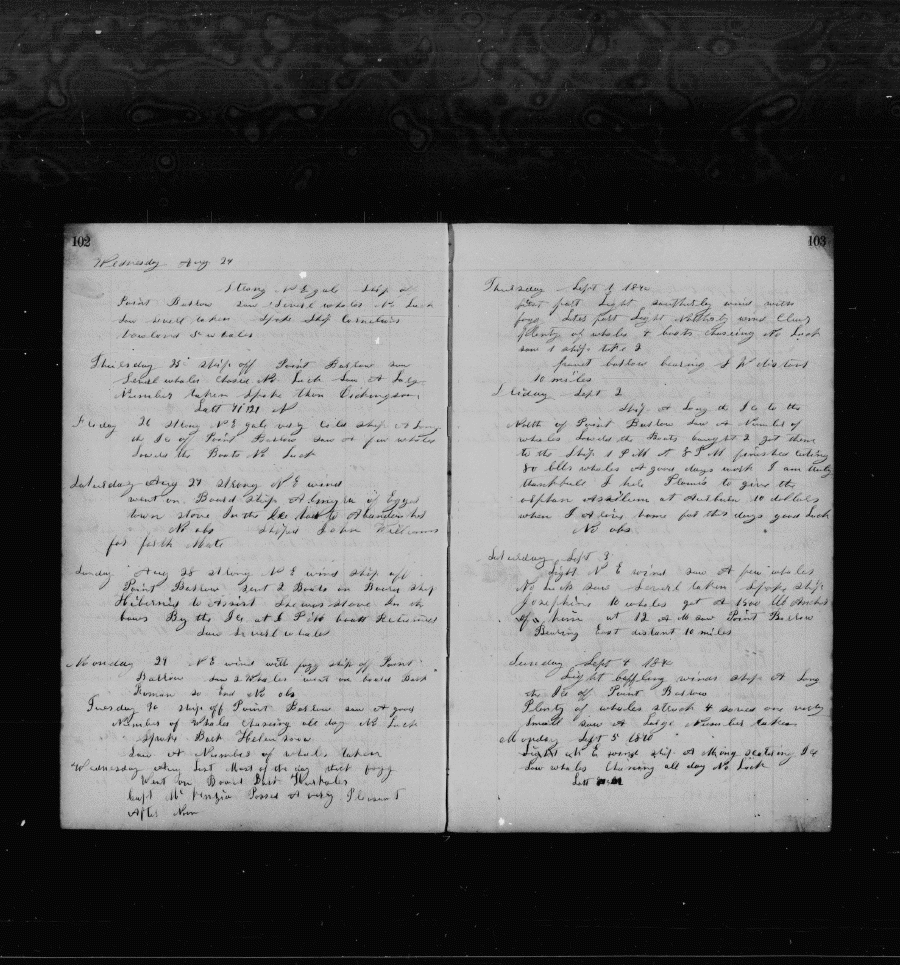 102
Wednesday Aug 24
Strong N E gale Ship at
Point Barrow saw Severl whales No Luck
Saw severl taken Spoke Ship Cornelius
Howland 5 whales
Thursday 25 Ship off Point Barrow saw
Severl whales Chased No Luck Saw A Large
Number taken Spoke thon Dickingson
Latt 71 121 N
Friday 26 Strong N E gale very Cold Ship A Long
the Ice of Point Barrow saw A few whales
Lowed the Boats No Luck
Saturday Aug 27 strong N E wind
went on Board Ship
town stove In the Ice to Abanden hed
No obs Shiped John Williams
for forth Mate
Sunday Aug 28 strong N E wind Ship off
Point Barrow sent 2 Boats on Board Ship
Hibernia to Assist She was stove In the
bows By the Ice at 1 P M boats Returned
Saw severl whales
Monday 29 N E wind with fogg ship off Point
Barrow saw 2 whales went on board Bark
Roman So End No obs
Tuesday 30 ship off Point Barrow saw A good
Number of whales Chassing all day No Luck
Spoke Bark Helen Snow
Saw A Number of whales taken
Wednesday Last Most of the day thick fogg
Went on Board Bark Hurkales
Capt Mc Kenzie Passed A very Plesent
After Noon
103
Thursday Sept 1 18
first part Light southerly wind with
fogg Later part Light Notherly wind Clear
Plenty of whales 4 boats chasing No Luck
saw 1 ship take 2
point barrow bearing S W distant
10 miles
Friday Sept 2
Ship A Long the Ice to the
North of Point Barrow Saw A Number of
whales Lowed the Boats caught 2 got them
to the Ship 1 P M At 8 P M finished cuting
80 bbls whales A good days work I am truly
thankfull I here Promis to give the
orphan Assilem at Auburn 10 dollars
when I Arive home for this days good Luck
No obs
Saturday Sept 3
Light N E wind saw A few whales
No Luck saw Severl taken Spoke Ship
Josephine 10 whales got A 1300 At Anchor
at 12 A M saw Point Barrow
Bearing East distant 10 miles
Sunday Sept 4 18
Light baffling winds ship A Long
the Ice of Point Barrow
Plenty of whales struck 4 saved one very
Small saw A Large Number taken
Monday Sept 5 18
Light N E wind ship A Mong scatering Ice
Saw whales Chassing all day No Luck
Latt